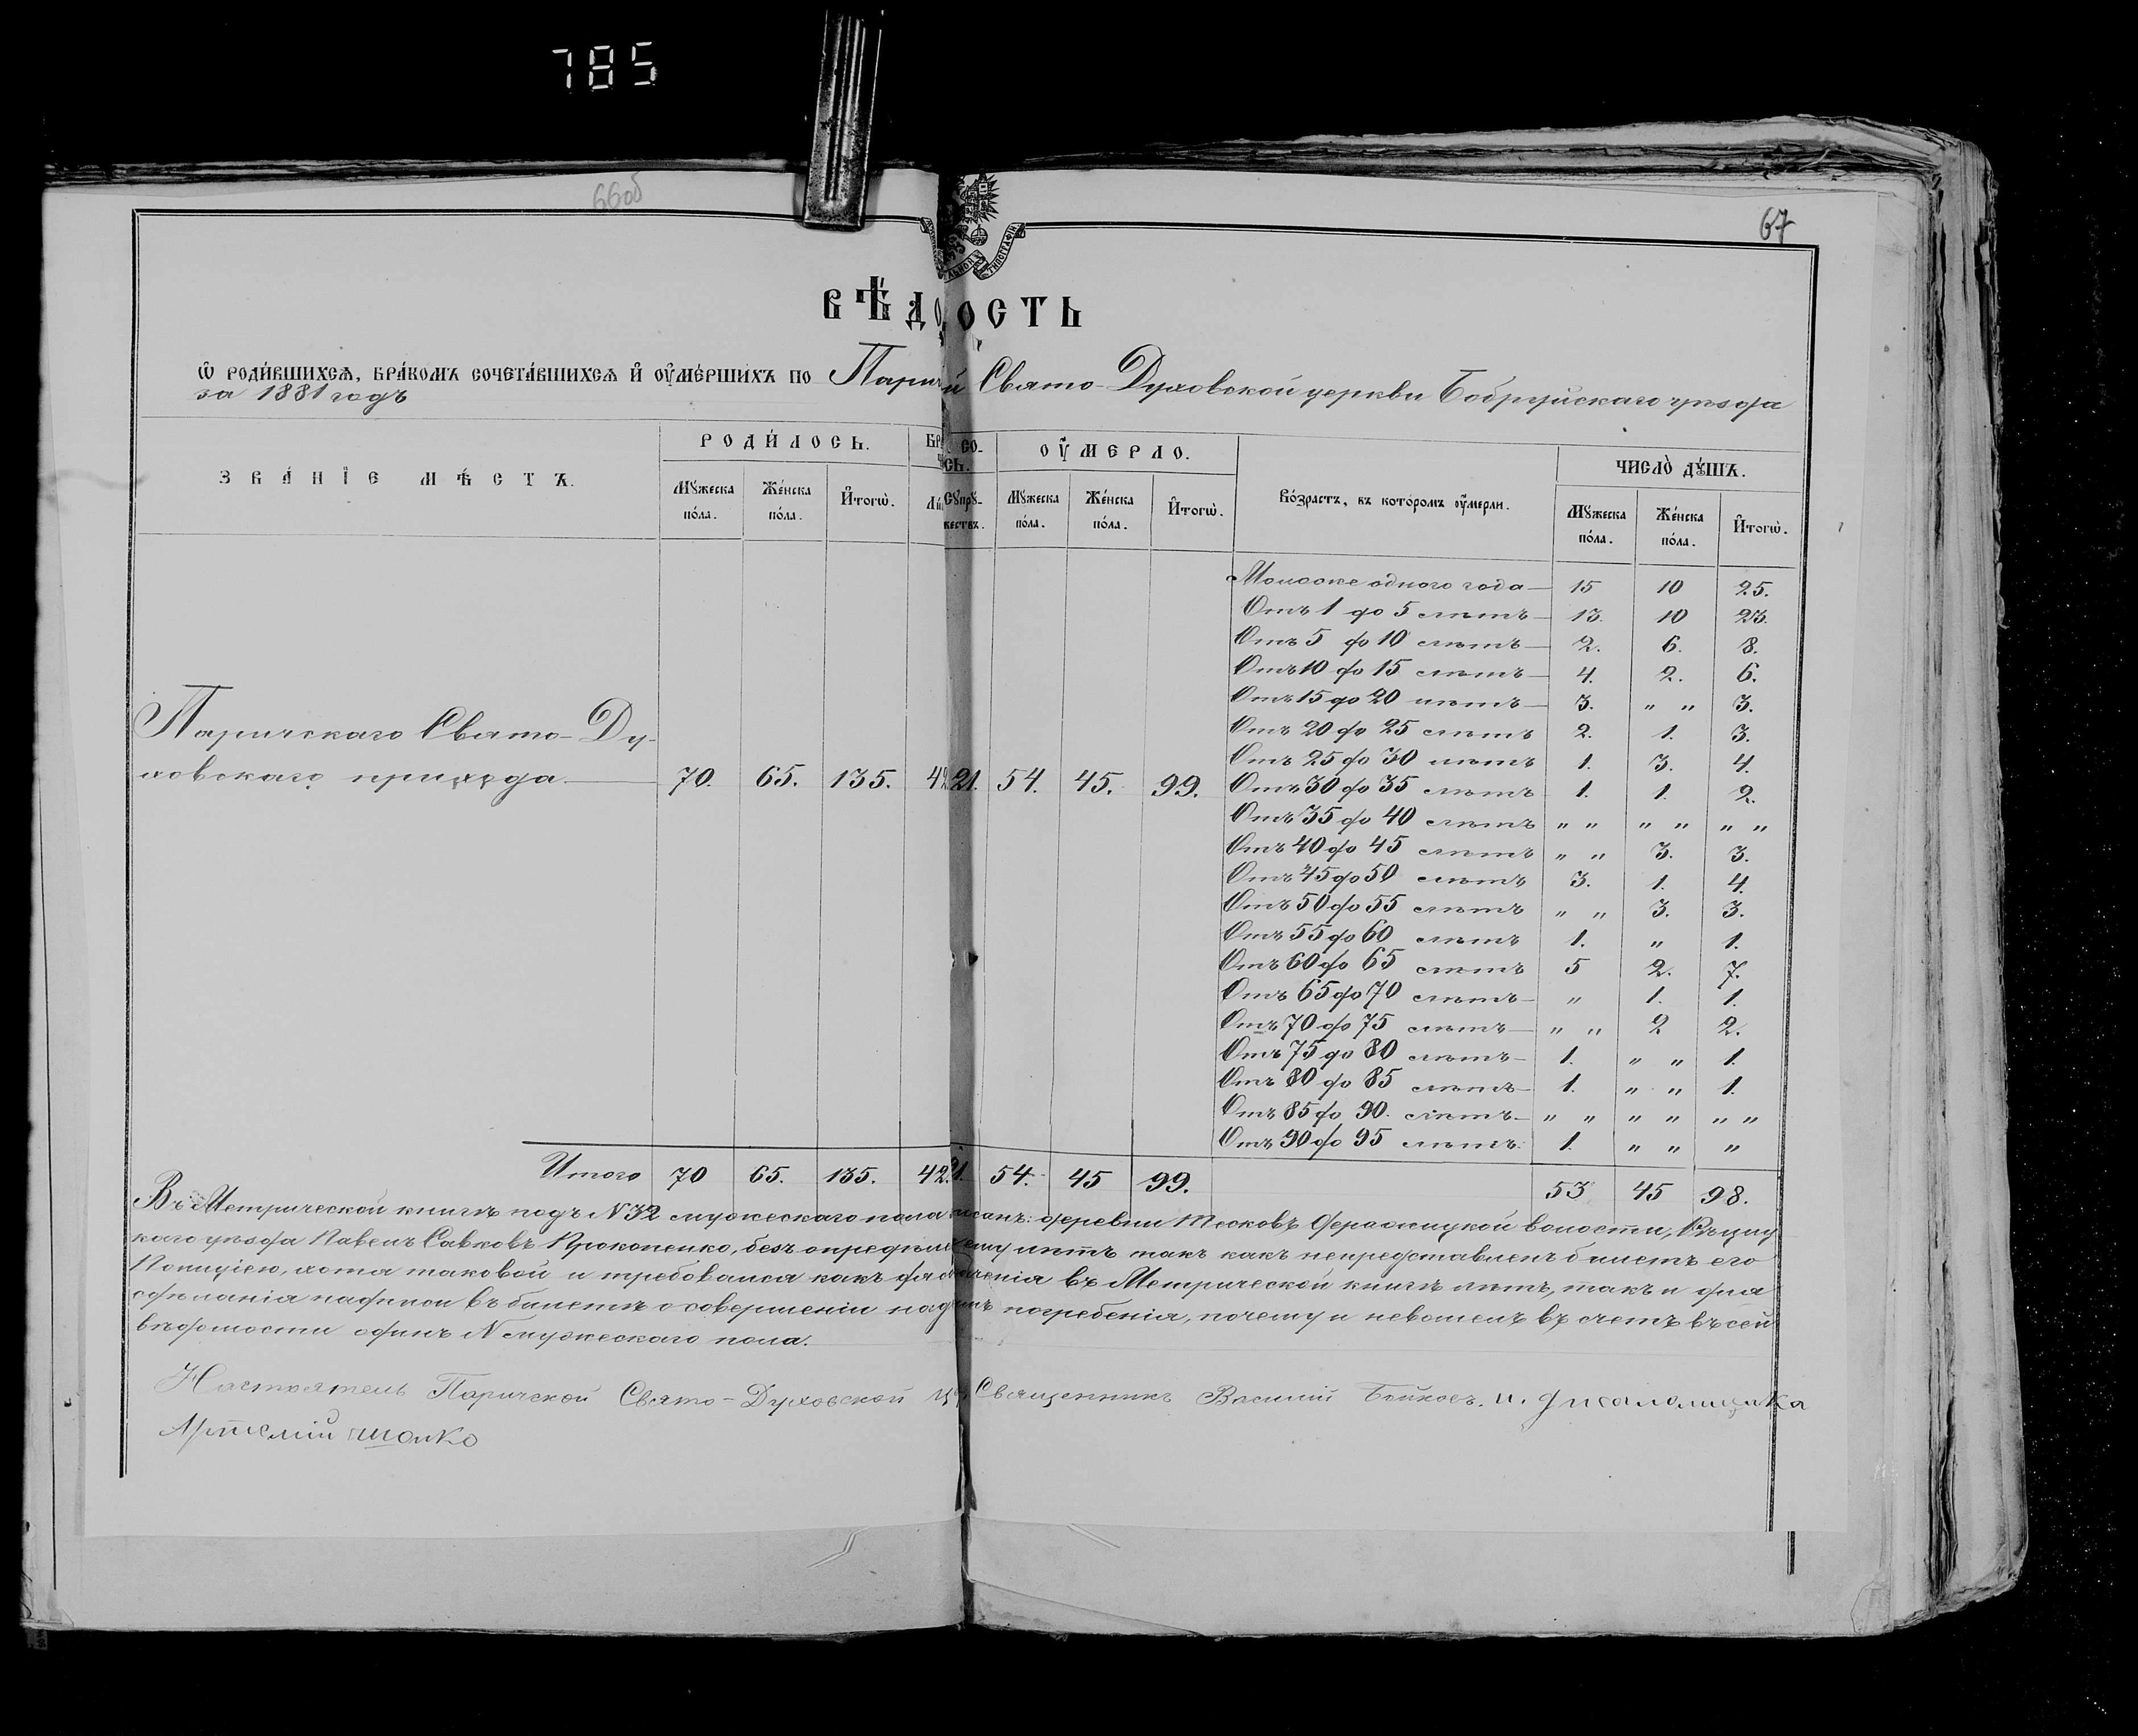 785
66об
67
ВѢДОСТЬ
Ѡ РОДИ́ВШИХСѦ, БРА́КОМЪ СОЧЕТА́ВШИХСѦ И҆ ОУ҆МЕ́РШИХЪ ПО Парич й Свято-Духовской церкви Бобруйскаго уѣзда
за 1881 годъ
ЗВА́НІЕ МѢ́СТЪ. РОДИ́ЛОСЬ. БР СО- СЬ. ОУ҆́МЕРЛО. Во́зрастъ, въ кото́ромъ оу҆́мерли. ЧИСЛО̀ ДꙊ́ШЪ.
Мꙋ́жеска по́ла. Же́нска по́ла. И҆того̀. Сꙋпрꙋ́- жествъ. Мꙋ́жеска по́ла. Же́нска по́ла. И҆того̀. Мꙋ́жеска по́ла. Же́нска по́ла. И҆того̀.
Моложе одного года — 15 10 25.
Отъ 1 до 5 лѣтъ — 13. 10 23.
Отъ 5 до 10 лѣтъ — 2. 6. 8.
Отъ 10 до 15 лѣтъ — 4. 2. 6.
Отъ 15 до 20 лѣтъ — 3. " " 3.
Отъ 20 до 25 лѣтъ 2. 1. 3.
Отъ 25 до 30 лѣтъ 1. 3. 4.
Паричскаго Свято-Ду-
ховскаго прихода. — 70. 65. 135. 42 21. 54. 45. 99. Отъ 30 до 35 лѣтъ 1. 1. 2.
Отъ 35 до 40 лѣтъ " " " " " "
Отъ 40 до 45 лѣтъ " " 3. 3.
Отъ 45 до 50 лѣтъ 3. 1. 4.
Отъ 50 до 55 лѣтъ " " 3. 3.
Отъ 55 до 60 лѣтъ 1. " 1.
Отъ 60 до 65 лѣтъ 5 2. 7.
Отъ 65 до 70 лѣтъ — " 1. 1.
Отъ 70 до 75 лѣтъ — " " 2 2.
Отъ 75 до 80 лѣтъ — 1. " " 1.
Отъ 80 до 85 лѣтъ — 1. " " 1.
Отъ 85 до 90. лѣтъ — " " " " " "
Отъ 90 до 95 лѣтъ. 1. " " "
Итого 70 65. 135. 42. 21. 54. 45 99. 53 45 98.
Въ Метрической книгѣ подъ N 32 мужескаго пола писанъ: деревни волости, Рѣчиц
каго уѣзда Павелъ Савковъ Прокопенко, безъ опредѣле ему лѣтъ такъ какъ непредставленъ билетъ его
Полиціею, хотя таковой и требовался какъ для о ченія въ Метрической книгѣ лѣтъ, такъ и для
сдѣланія надписи въ билетѣ о совершеніи над имъ погребенія, почему и невошелъ въ счетъ въ сей
вѣдомости одинъ N мужескаго пола.
Настоятель Паричской Свято-Духовской Ц Священникъ Василій Бейковъ. и. д псаломщика
Артемій Шолко